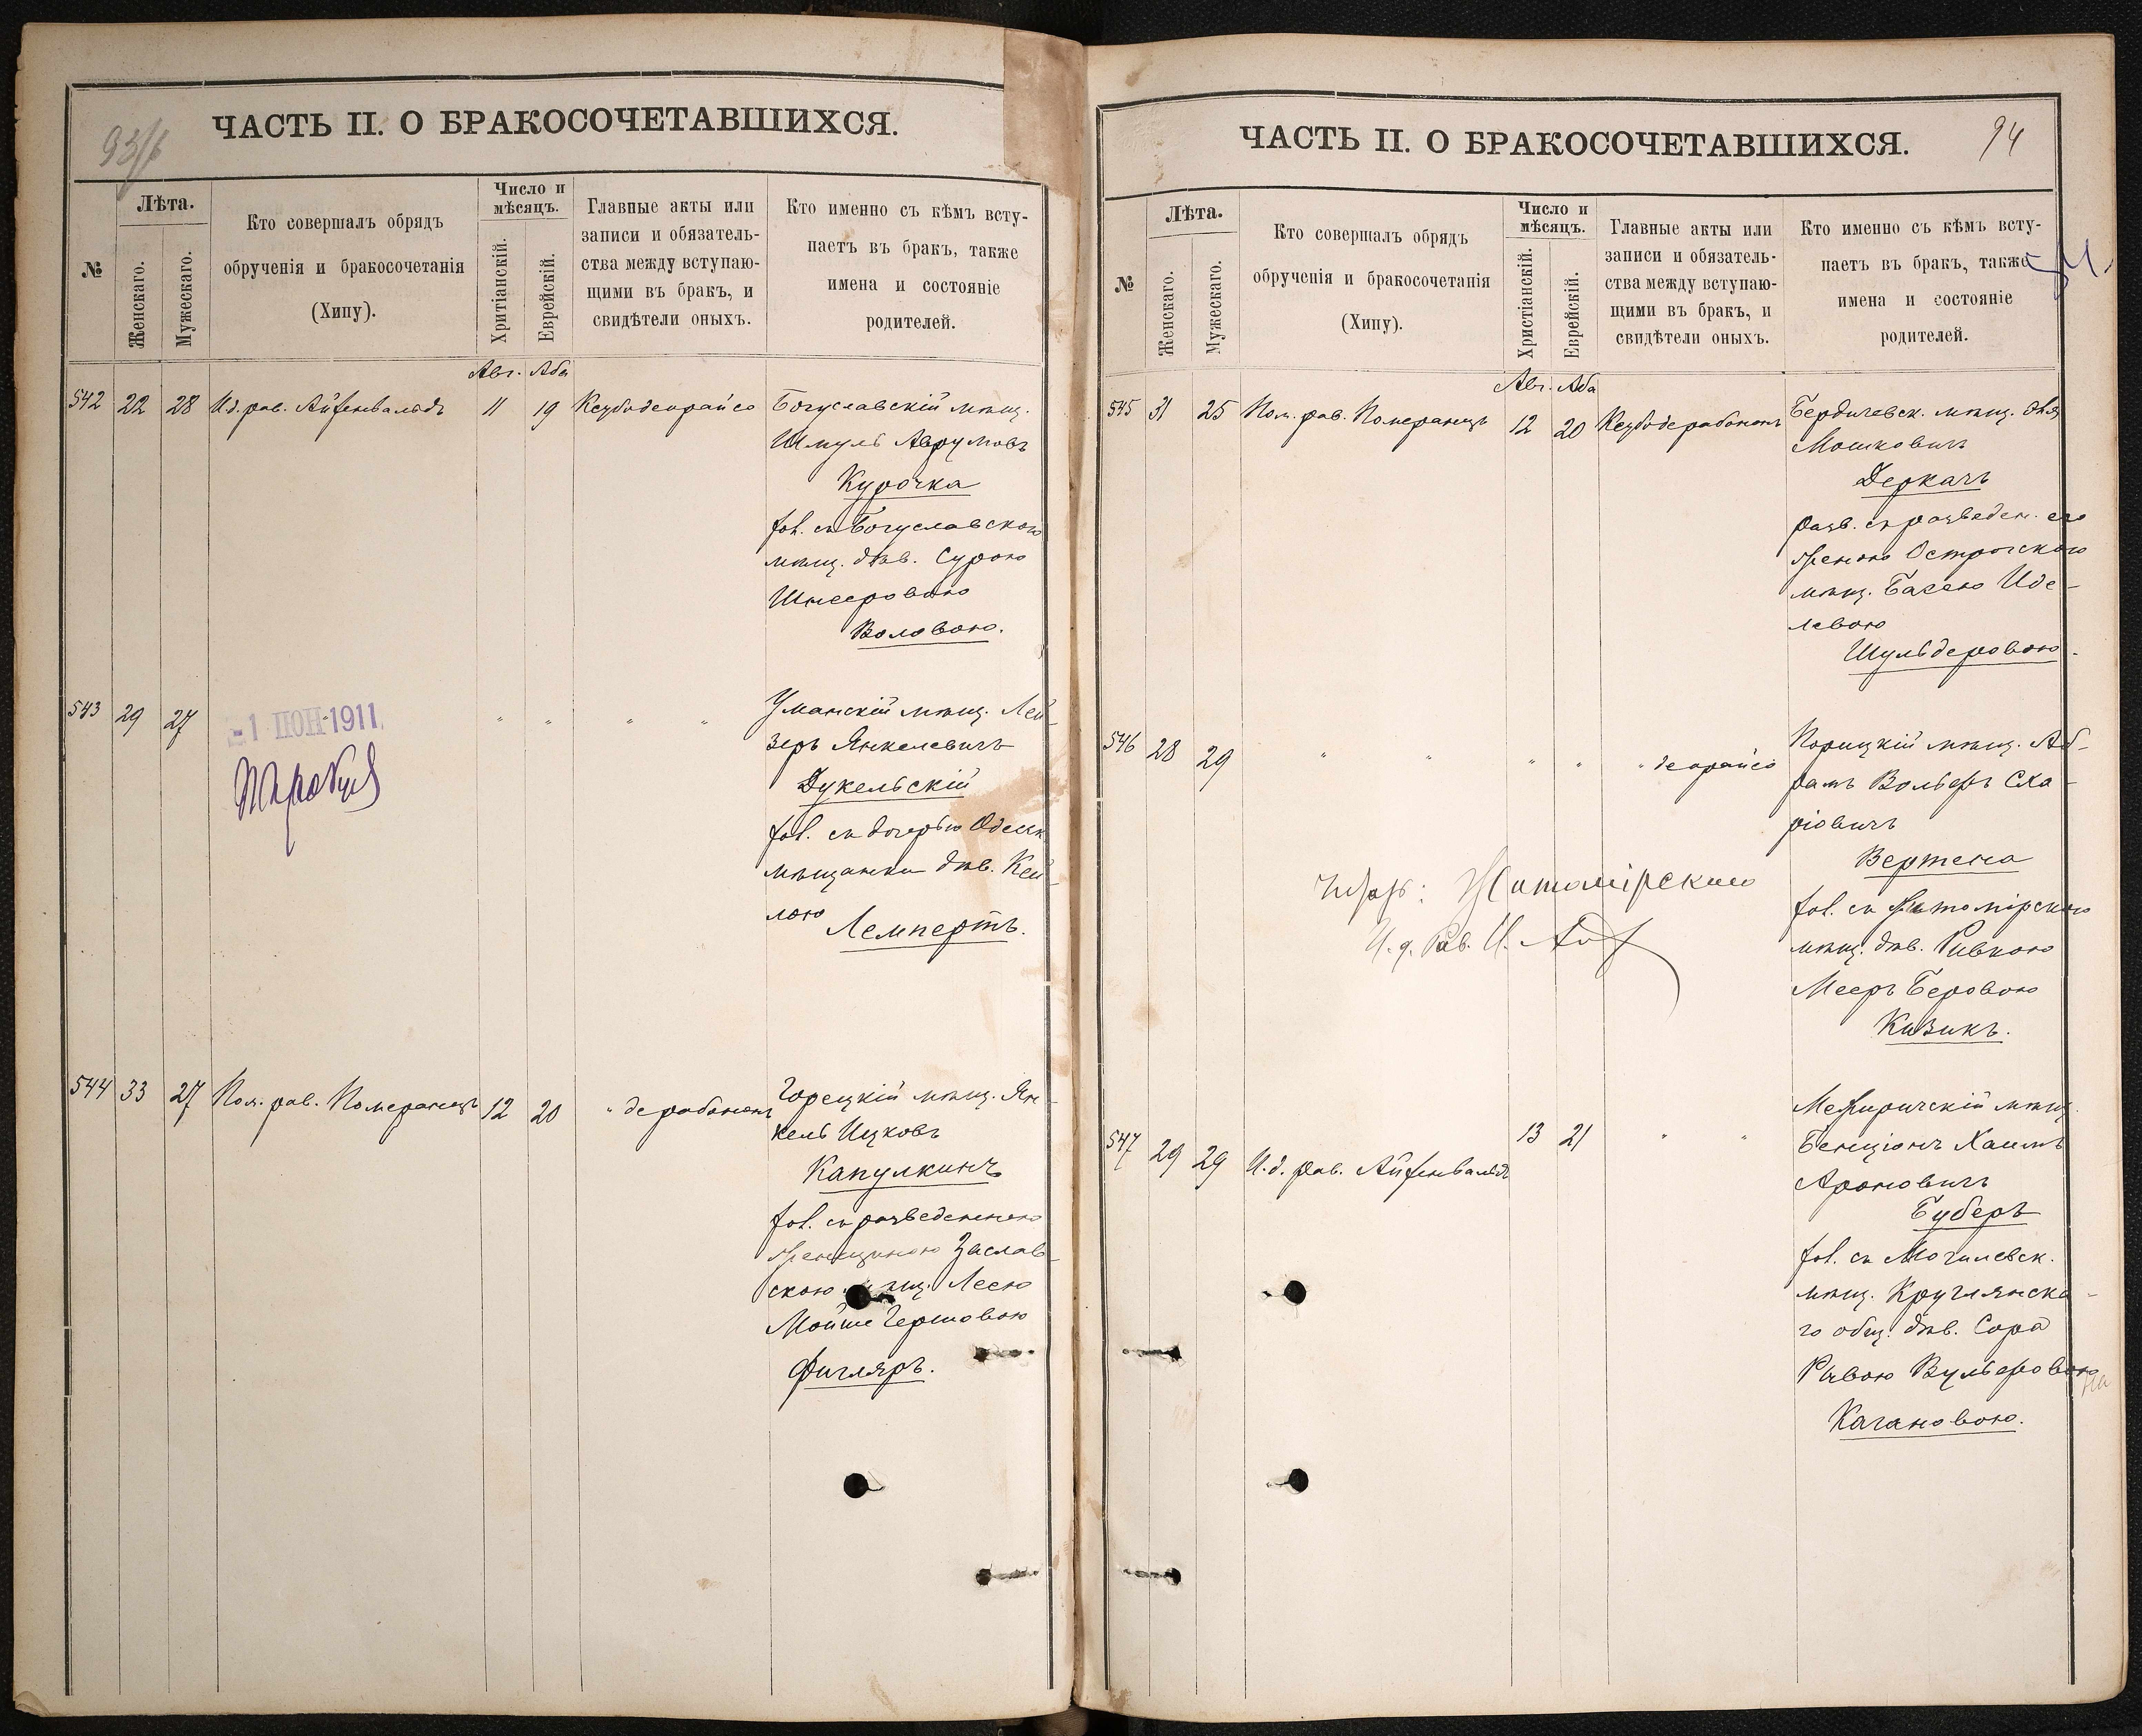 93/б
ЧАСТЬ II. О БРАКОСОЧЕТАВШИХСЯ.
№
Лѣта.
Женскаго.
Мужескаго.
Кто совершалъ обрядъ
обрученія и бракосочетанія
(Хипу).
Число и
мѣсяцъ.
Хритіанскій.
Еврейскій.
Главные акты или
записи и обязатель-
ства между вступаю-
щими въ бракъ, и
свидѣтели оныхъ.
Кто именно съ кѣмъ всту-
паетъ въ бракъ, также
имена и состояніе
родителей.
Авг. Аба
542 22 28 И.д. рав. Айзенвальдъ 11 19 Ксубодеорайсо Богуславскій мѣщ.
Шмуль Аврумовъ
Курочка
хол. съ Богуславскою
мѣщ. дѣв. Сурою
Шнееровою
Воловою.
543 29 27 " " " " Уманскій мѣщ. Лей-
зеръ Янкелевичъ
Дукельскій
хол. съ дочерью Одесск.
мѣщанки дѣв. Кей-
лою
Лемпертъ.
-1 ІЮН 1911
544 33 27 Пом. рав. Померанецъ 12 20 " дерабононъ Горецкій мѣщ. Ян-
кель Ицковъ
Капулкинъ
хол. съ разведенною
женщиною Заслав-
скою мѣщ. Леею
Мойше Гершовою
Фигляръ.
94
ЧАСТЬ II. О БРАКОСОЧЕТАВШИХСЯ.
№
Лѣта.
Женскаго.
Мужескаго.
Кто совершалъ обрядъ
обрученія и бракосочетанія
(Хипу).
Число и
мѣсяцъ.
Христіанскій.
Еврейскій.
Главные акты или
записи и обязатель-
ства между вступаю-
щими въ бракъ, и
свидѣтели оныхъ.
Кто именно съ кѣмъ всту-
паетъ въ бракъ, также
имена и состояніе
родителей.
Авг. Аба
545 31 25 Пом. рав. Померанецъ 12 20 Ксубодерабононъ Бердичевск. мѣщ.
Мошковичъ
Деркачъ
разв. съ разведен. его
женою Острогскою
мѣщ. Басею Иде-
левою
Шульдеровою.
546 28 29 " " " " " деорайсо Корицкій мѣщ. Аб-
рамъ Вольфъ Сха-
ріовичъ
Вертена
хол. съ Житомірскою
мѣщ. дѣв. Ривкою
Мееръ Беровою
Кизикъ.
Житомірскаго
И. д. Рав.
547 29 29 И.д. рав. Айзенвальдъ 13 21 " " Межиричскій мѣщ.
Бенціонъ Хаимъ
Ароновичъ
Буберъ
хол. съ Могилевск.
мѣщ. Круглянска-
го общ. дѣв. Сора
Ривою Вульфовою
Кагановою.